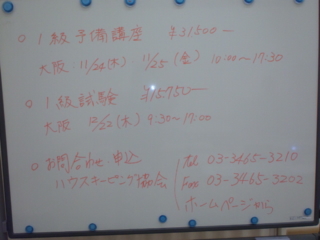 ○ 1級予備講座 ¥31500ー
大阪 11/24(木) 11/25(金) 10:00〜17:30
○ 1級試験 ¥15.750ー
大阪 12/22(木) 9:30〜17:00
○ お問合わせ 申込
ハウスキーピング協会
Tel 03-3465-3210
Fax 03-3465-3202
ホームページから